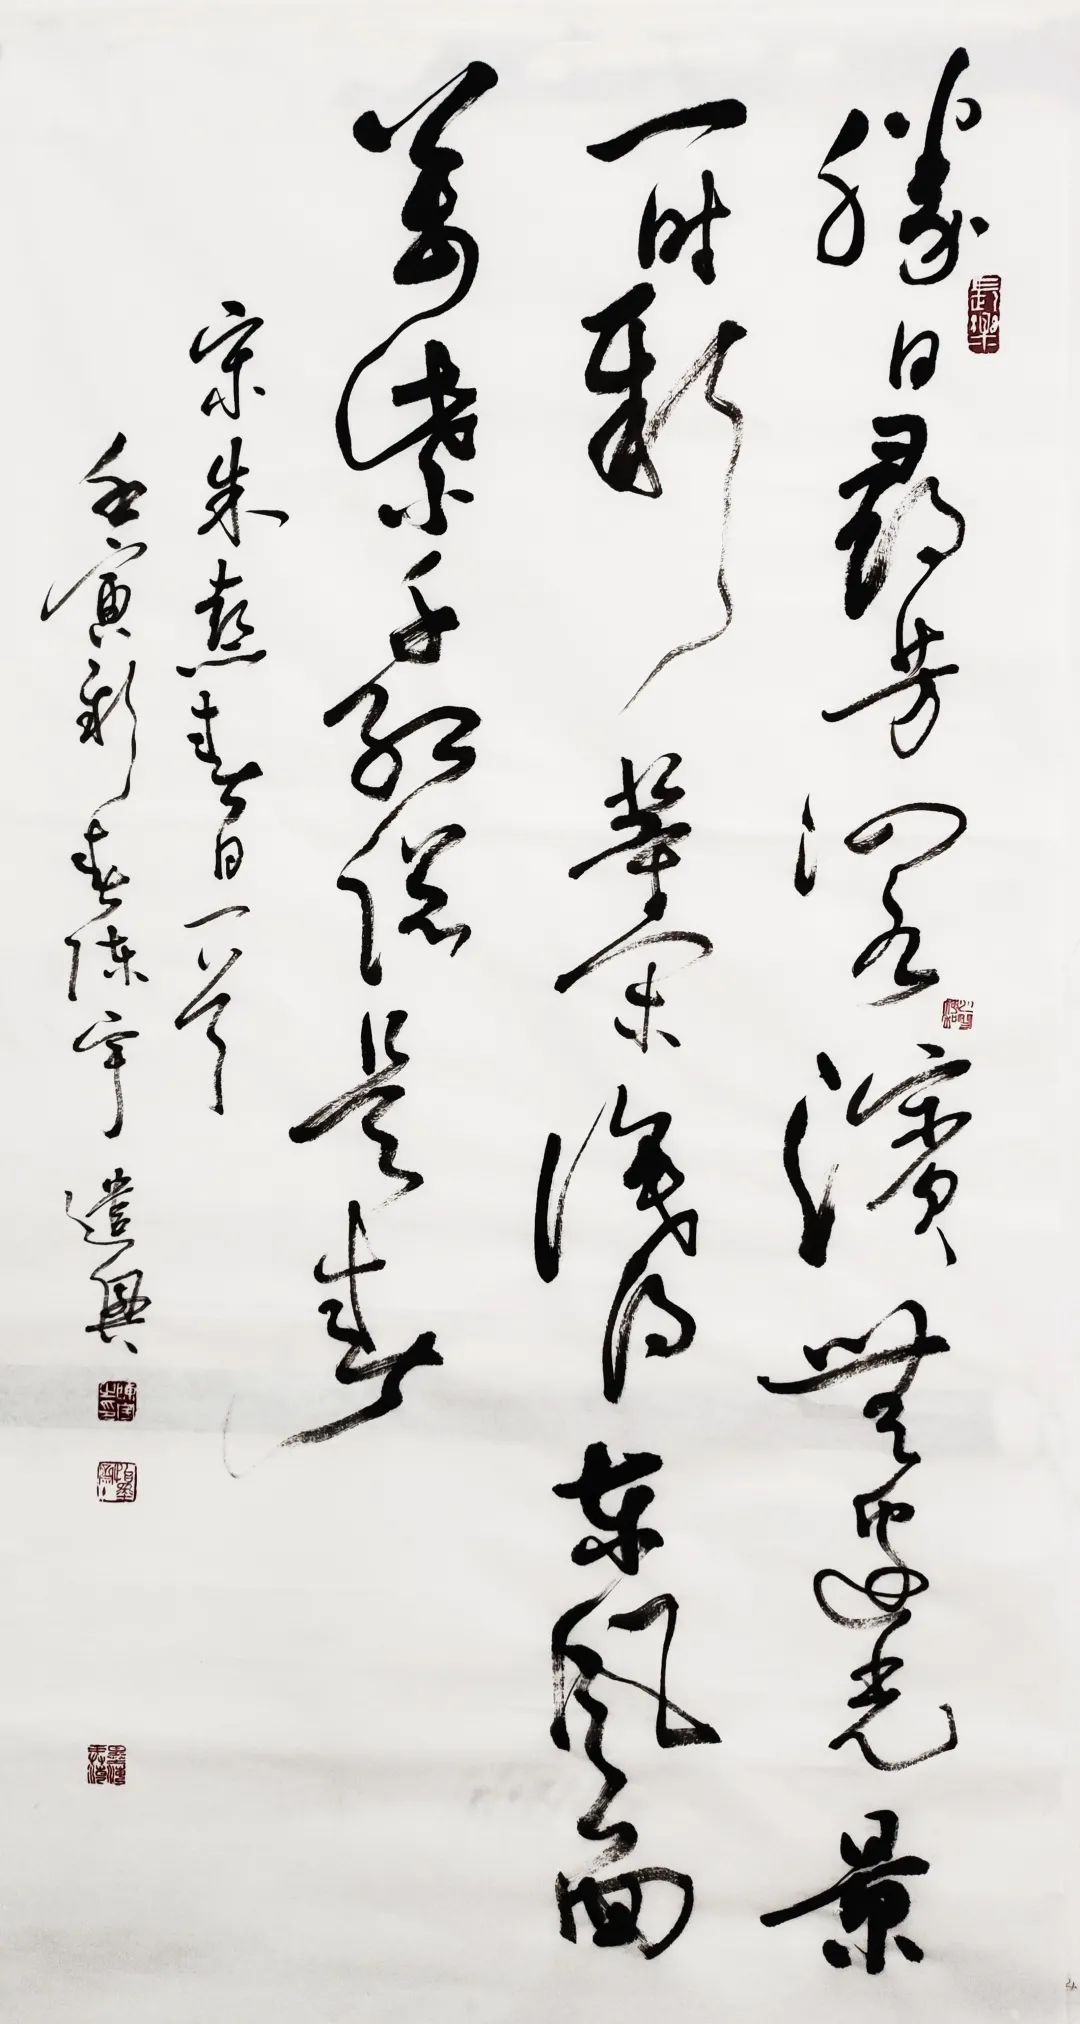 勝日尋芳泗水濱無邊光景
一時新等閑識得東風面
萬紫千紅總是春
宋朱熹春日一首
壬寅新春陳宇遣興
長樂